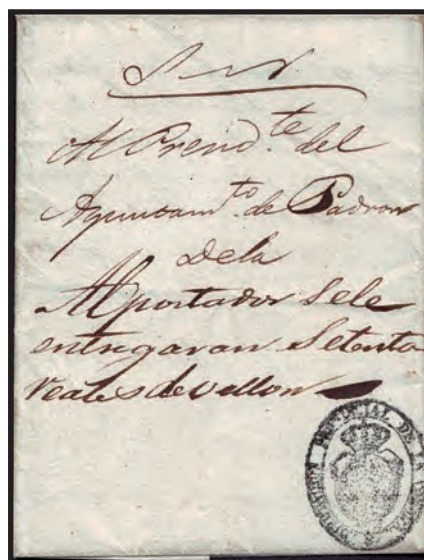 S N.
Al Presid.te del
Ayuntam.to de Padron
Dela
Al portador sele
entregaran Setenta
reales de vellon
DIPUTACION PROVINCIAL DE LA